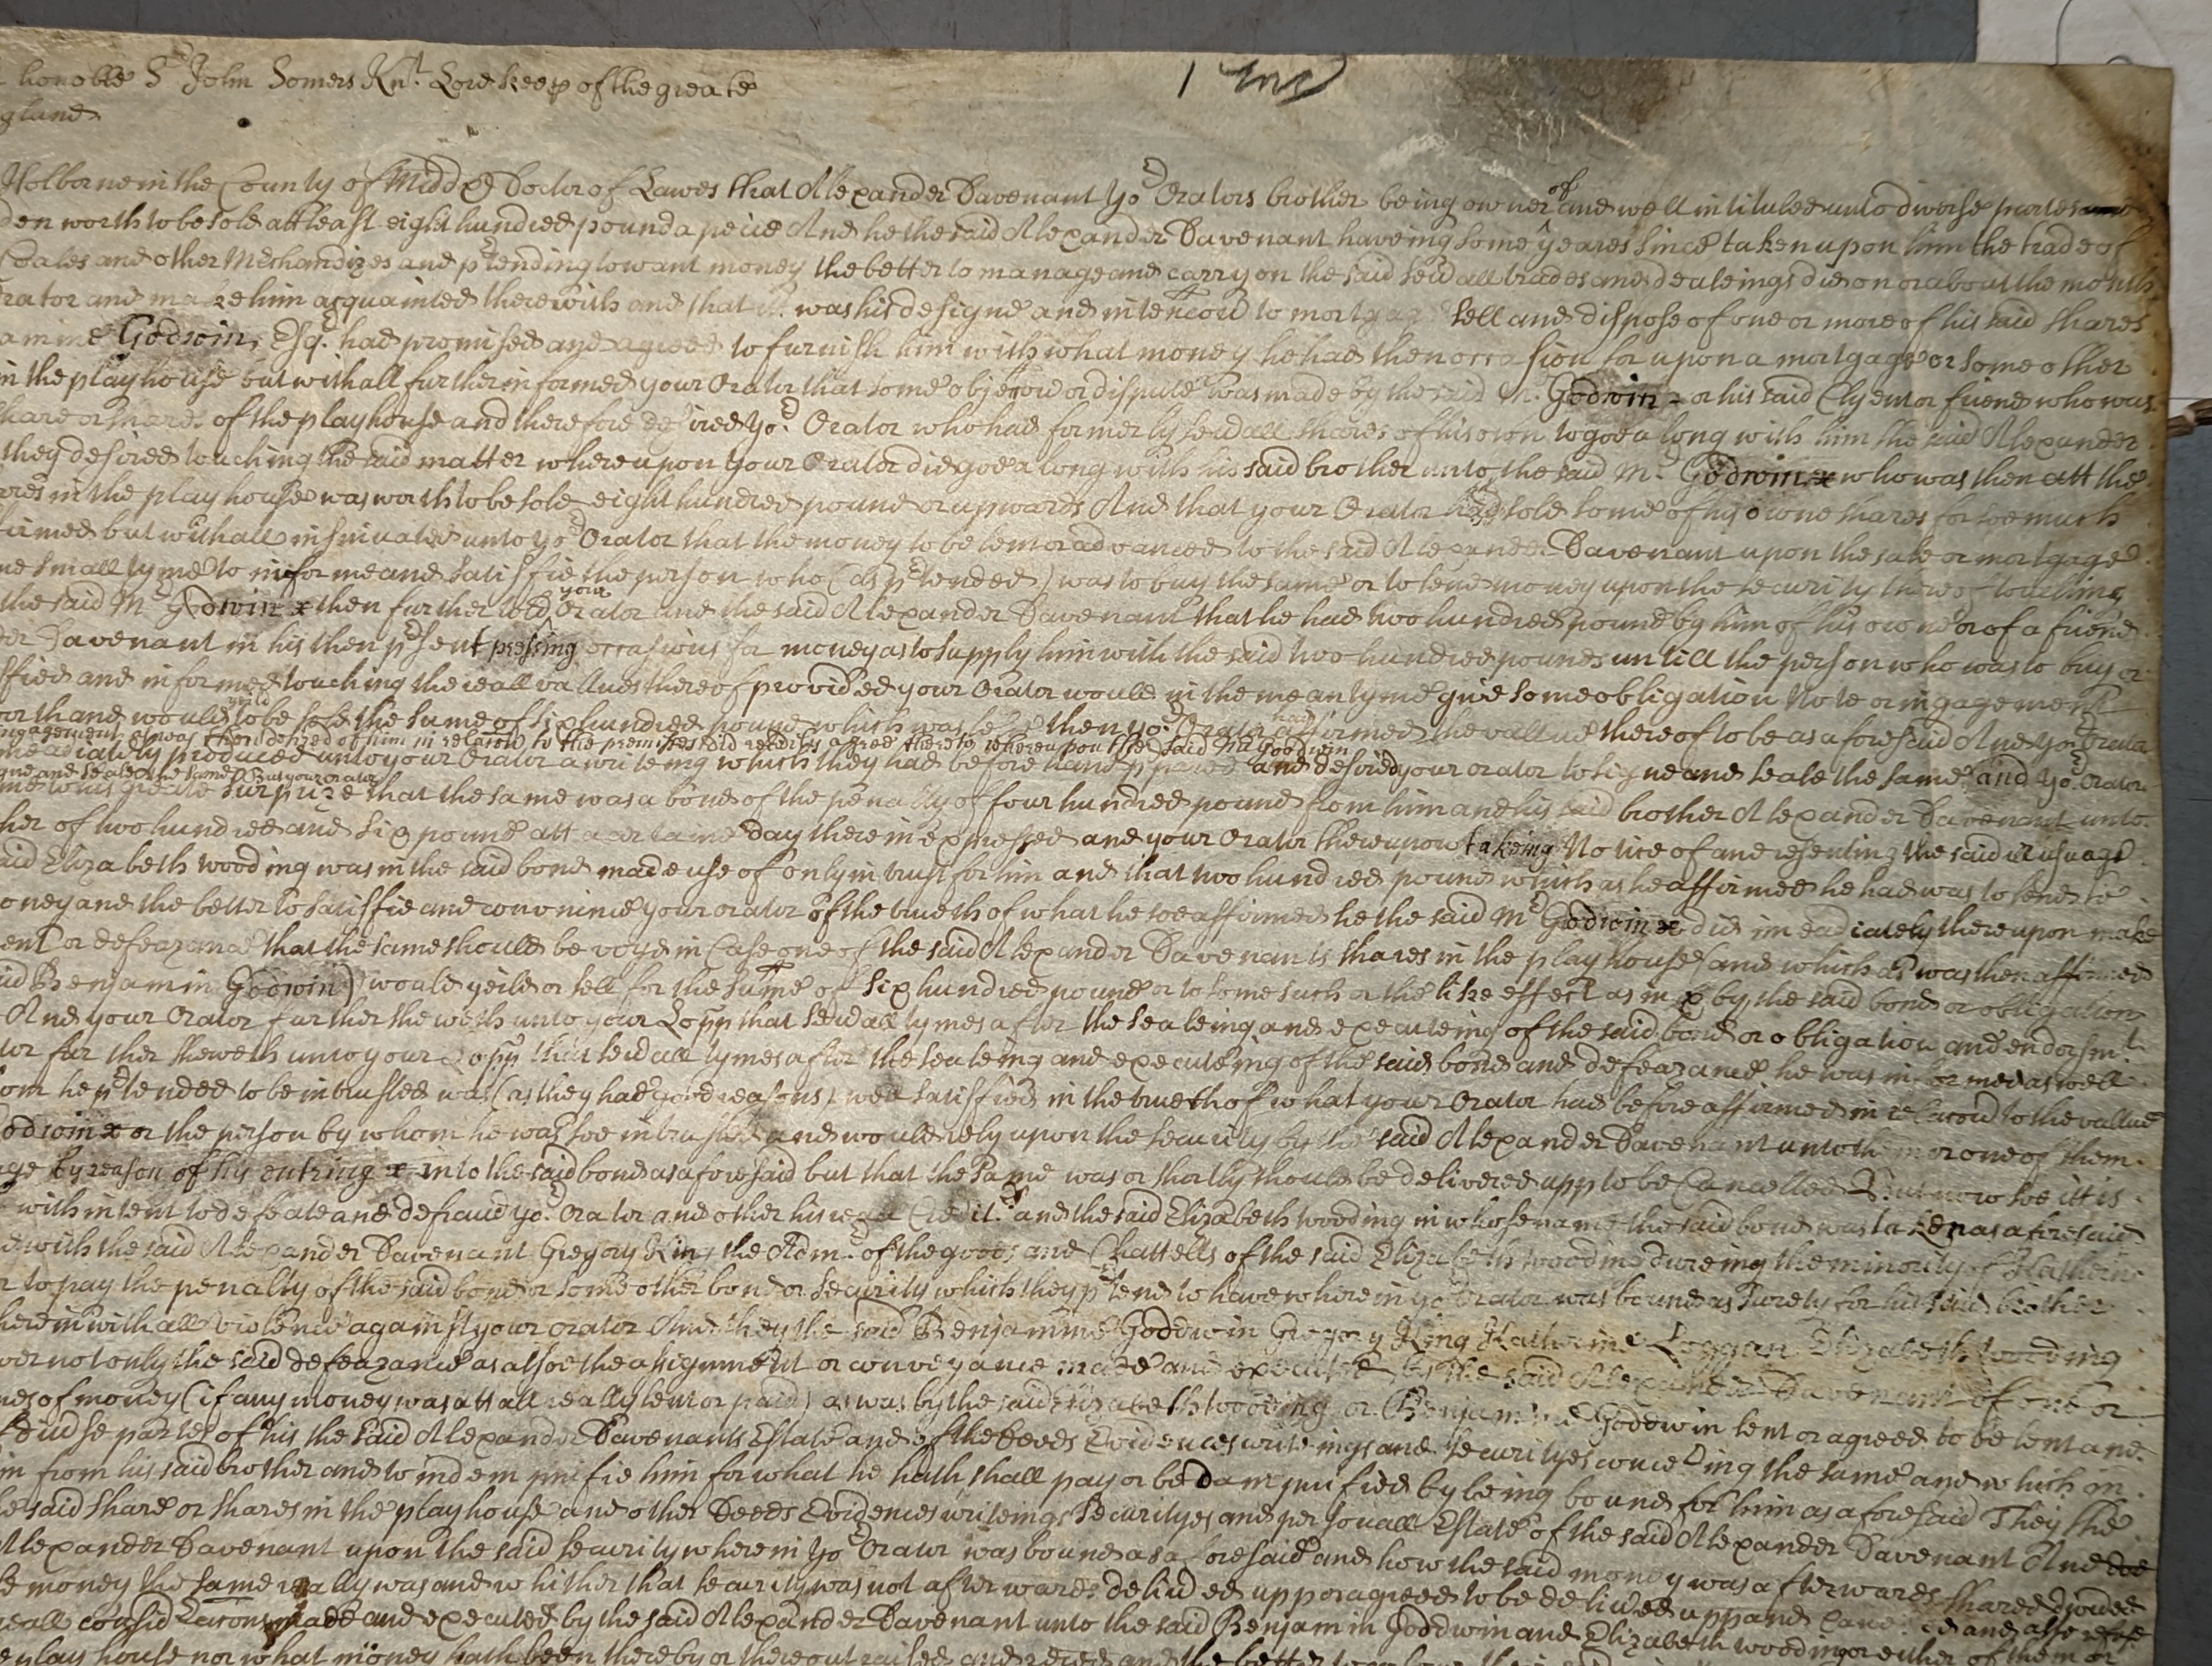 honoble Sr John Somers Knt. Lord keep of the greate
gland
Holborne in the County of Middx Doctor of Lawes that Alexander Davenant yor Orators brother being owner of and well intituled unto diverse partes
den worth to be sold att least eight hundred pound a peice And he the said Alexander Davenant haveing some yeares since taken upon him the trade of
Coales and other Merchandizes and prtending to want money the better to manage and carry on the said sevall trades and dealeings did on or about the month
rator and make him acquainted therewith and that it was his designe and intencon to mortgage sell and dispose of one or more of his said shares
amine Godwin, Esqr. had promised and agreed to furnish him with what money he had then occasion for upon a mortgage or some other
in the playhouse but withall further informed your Orator that some objeccon or dispute was made by the said Mr. Godwin or his said Clyent or friend who was
share or shares of the playhouse and therefore desired yor. Orator who had formerly sevall shares of his own to goe along with him the said Alexander
they desired touching the said matter whereupon your Orator did goe along with his said brother unto the said Mr. Godwin x who was then att the
ares in the playhouse was worth to be sold eight hundred pound or upwards And that your Orator had sold some of his owne shares for soe much
firmed but withall insinuated unto yor Orator that the money to be lent or advanced to the said Alexander Davenant upon the sale or mortgage
me small tyme to informe and satisfie the person who (as prtended) was to buy the same or to lend money upon the security thereof touching
the said Mr Godwin x then further told your Orator and the said Alexander Davenant that he had two hundred pound by him of his owne or of a friend
der Davenant in his then prsent pressing occasions for money as to supply him with the said two hundred pounds untill the person who was to buy or
sfied and informed touching the reall vallues thereof provided your Orator would in the meantyme give some obligation Note or ingagement
worth and would yeild to be sold the sume of six hundred pound which was less then yor. Orator had affirmed the vallue thereof to be as aforesaid And yor Orator
ngagement as was then desired of him in relacon to the premisses did readily agree thereto whereupon the said Mr Goodwin
mediately produced unto your Orator a writeing which they had before hand ppared and desired your orator to signe and seale the same and yor. Orator
gne and seale the same But your orator
me to his greate surprize that the same was a bond of the penalty of four hundred pound from him and his said brother Alexander Davenant unto
her of two hundred and six pound att a certaine day therein expressed and your Orator thereupon takeing Notice of and resenting the said ill usuage
aid Elizabeth wooding was in the said bond made use of only in trust for him and that two hundred pound which as he affirmed he had was to lend to
oney and the better to satisfie and convince your orator of the trueth of what he soe affirmed he the said Mr Godwin x did imeadiately thereupon make
ent or defeazance that the same should be voyd in Case one of the said Alexander Davenants shares in the playhouse (and which as was then affirmed
aid Benjamin Godwin) would yeild or sell for the sume of six hundred pound or to some such or the like effect as in & by the said bond or obligation
And your Orator further sheweth unto your Lopp that sevall tymes after the sealeing and executeing of the said bond or obligation and endorsmt.
tor further sheweth unto your Lopp that sevall tymes after the sealeing and executeing of the said bond and defeazance he was informed as well
om he prtended to be intrusted was (as they had good reasons) well satisfied in the trueth of what your Orator had before affirmed in relacon to the vallue
odwin x or the person by whom he was soe intrusted and would rely upon the security by the said Alexander Davenant unto them or one of them
age by reason of his entring x into the said bond as aforesaid but that the same was or shortly should be delivered upp to be Cancelled But now soe itt is
with intent to defeate and defraud yor. Orator and other his reall Credit.rs and the said Elizabeth wooding in whose name the said bond was taken as aforesaid
with the said Alexander Davenant Gregory King the Admr. of the goods and Chattells of the said Elizabeth wooding dureing the minority of Katherin
r to pay the penalty of the said bond or some other bond or security which they prtend to have wherein yor Orator was bound as surety for his said brother
herein with all violence against your orator And they the said Benjamine Goddwin Gregory King Katherine Loggan Elizabeth wooding
over not only the said defeazance as alsoe the assignment or conveyance made and executed by the said Alexander Davenant of one or
mes of money (if any money was att all really lent or paid) as was by the said Elizabeth wooding or Benjamine Goddwin lent or agreed to be lent and
divse partes of his the said Alexander Davenants Estate and of the Deeds Evidences writeings and securityes concerning the same and which in
m from his said brother and to indempnifie him for what he hath shall pay or be dampnified by being bound for him as aforesaid They the
he said share or shares in the playhouse and other Deeds Evidences writeings securityes and personall Estate of the said Alexander Davenant And
Alexander Davenant upon the said security wherein yor Orator was bound as aforesaid and how the said money was afterwards shared
e money the same really was and whither that security was not afterwards delived upp or agreed to be delived upp and
reall considracons made and executed by the said Alexander Davenant unto the said Benjamin Goddwin and Elizabeth wooding or either of them or
e play house nor what money hath been thereby or thereout raised and